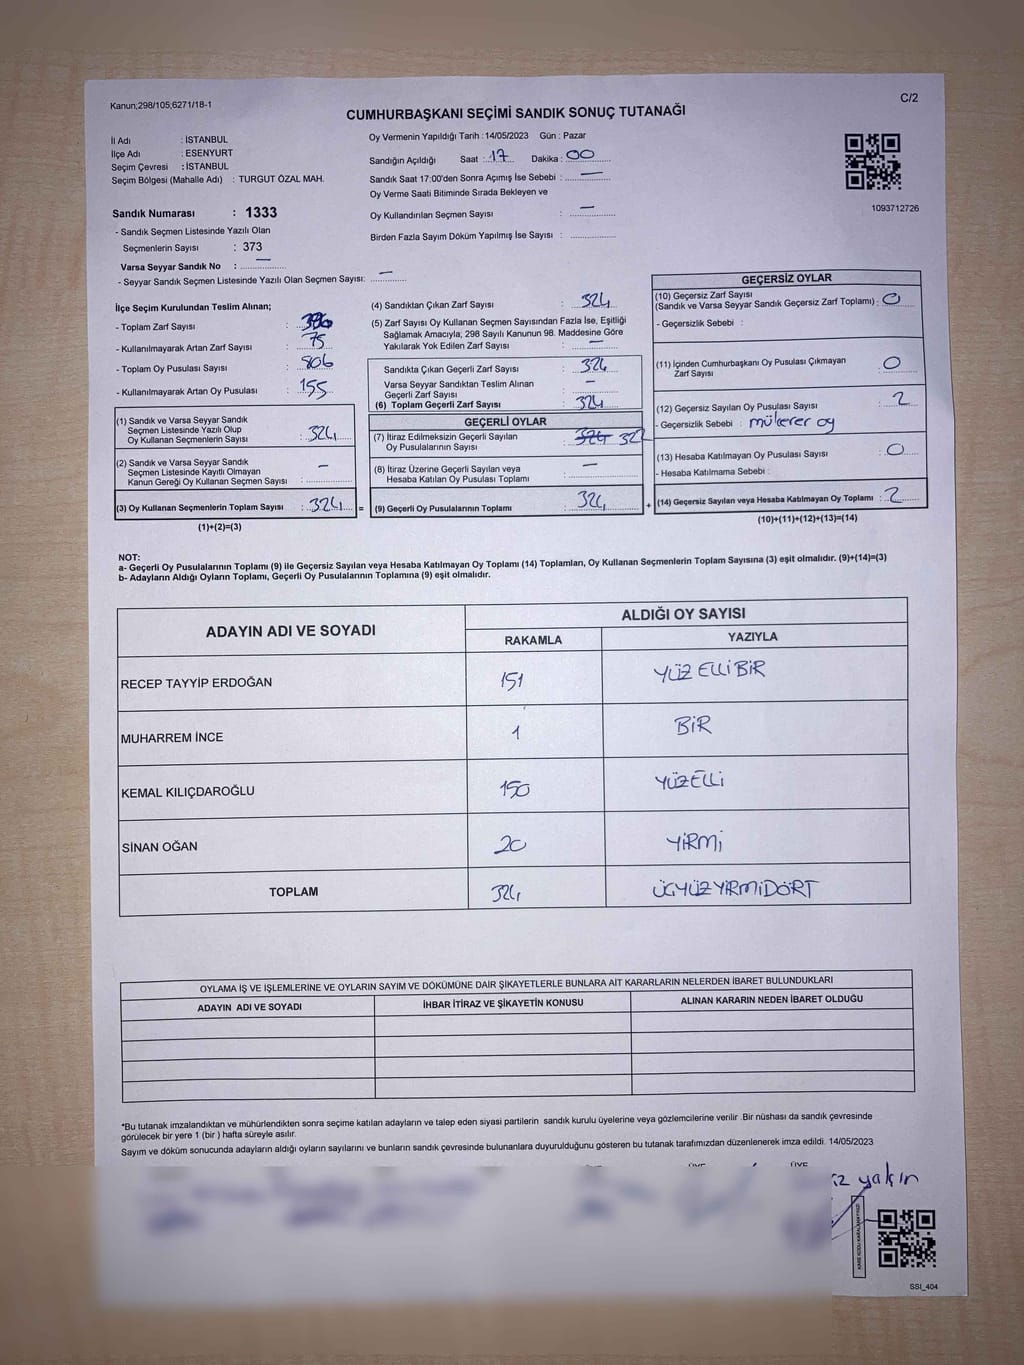 Kanun;298/105;6271/18-1
C/2
CUMHURBAŞKANI SEÇİMİ SANDIK SONUÇ TUTANAĞI
İl Adı : İSTANBUL
İlçe Adı : ESENYURT
Seçim Çevresi : İSTANBUL
Seçim Bölgesi (Mahalle Adı) : TURGUT ÖZAL MAH.
Sandık Numarası : 1333
- Sandık Seçmen Listesinde Yazılı Olan
Seçmenlerin Sayısı : 373
Varsa Seyyar Sandık No : —
- Seyyar Sandık Seçmen Listesinde Yazılı Olan Seçmen Sayısı: —
Oy Vermenin Yapıldığı Tarih : 14/05/2023 Gün : Pazar
Sandığın Açıldığı Saat : 17 Dakika : 00
Sandık Saat 17:00'den Sonra Açımış İse Sebebi : —
Oy Verme Saati Bitiminde Sırada Bekleyen ve
Oy Kullandırılan Seçmen Sayısı : —
Birden Fazla Sayım Döküm Yapılmış İse Sayısı :
1093712726
İlçe Seçim Kurulundan Teslim Alınan;
- Toplam Zarf Sayısı :
- Kullanılmayarak Artan Zarf Sayısı : 75
- Toplam Oy Pusulası Sayısı :
- Kullanılmayarak Artan Oy Pusulası : 155
(1) Sandık ve Varsa Seyyar Sandık
Seçmen Listesinde Yazılı Olup
Oy Kullanan Seçmenlerin Sayısı : 324
(2) Sandık ve Varsa Seyyar Sandık
Seçmen Listesinde Kayıtlı Olmayan
Kanun Gereği Oy Kullanan Seçmen Sayısı : —
(3) Oy Kullanan Seçmenlerin Toplam Sayısı : 324 =
(1)+(2)=(3)
(4) Sandıktan Çıkan Zarf Sayısı : 324
(5) Zarf Sayısı Oy Kullanan Seçmen Sayısından Fazla İse, Eşitliği
Sağlamak Amacıyla; 298 Sayılı Kanunun 98. Maddesine Göre
Yakılarak Yok Edilen Zarf Sayısı : —
Sandıkta Çıkan Geçerli Zarf Sayısı : 324
Varsa Seyyar Sandıktan Teslim Alınan
Geçerli Zarf Sayısı : —
(6) Toplam Geçerli Zarf Sayısı : 324
GEÇERLİ OYLAR
(7) İtiraz Edilmeksizin Geçerli Sayılan
Oy Pusulasının Sayısı : 324 322
(8) İtiraz Üzerine Geçerli Sayılan veya
Hesaba Katılan Oy Pusulası Toplamı : —
(9) Geçerli Oy Pusulalarının Toplamı : 324 +
GEÇERSİZ OYLAR
(10) Geçersiz Zarf Sayısı
(Sandık ve Varsa Seyyar Sandık Geçersiz Zarf Toplamı) : 0
- Geçersizlik Sebebi :
(11) İçinden Cumhurbaşkanı Oy Pusulası Çıkmayan
Zarf Sayısı : 0
(12) Geçersiz Sayılan Oy Pusulası Sayısı : 2
- Geçersizlik Sebebi : mükerer oy
(13) Hesaba Katılmayan Oy Pusulası Sayısı : 0
- Hesaba Katılmama Sebebi :
(14) Geçersiz Sayılan veya Hesaba Katılmayan Oy Toplamı : 2
(10)+(11)+(12)+(13)=(14)
NOT:
a- Geçerli Oy Pusulalarının Toplamı (9) ile Geçersiz Sayılan veya Hesaba Katılmayan Oy Toplamı (14) Toplamları, Oy Kullanan Seçmenlerin Toplam Sayısına (3) eşit olmalıdır. (9)+(14)=(3)
b- Adayların Aldığı Oyların Toplamı, Geçerli Oy Pusulalarının Toplamına (9) eşit olmalıdır.
ADAYIN ADI VE SOYADI
ALDIĞI OY SAYISI
RAKAMLA YAZIYLA
RECEP TAYYİP ERDOĞAN 151 YÜZ ELLİ BİR
MUHARREM İNCE 1 BİR
KEMAL KILIÇDAROĞLU 150 YÜZELLİ
SİNAN OĞAN 20 YİRMİ
TOPLAM 324 ÜÇYÜZYİRMİDÖRT
OYLAMA İŞ VE İŞLEMLERİNE VE OYLARIN SAYIM VE DÖKÜMÜNE DAİR ŞİKAYETLERLE BUNLARA AİT KARARLARIN NELERDEN İBARET BULUNDUKLARI
ADAYIN ADI VE SOYADI İHBAR İTİRAZ VE ŞİKAYETİN KONUSU ALINAN KARARIN NEDEN İBARET OLDUĞU
*Bu tutanak imzalandıktan ve mühürlendikten sonra seçime katılan adayların ve talep eden siyasi partilerin sandık kurulu üyelerine veya gözlemcilerine verilir .Bir nüshası da sandık çevresinde
görülecek bir yere 1 (bir ) hafta süreyle asılır.
Sayım ve döküm sonucunda adayların aldığı oyların sayılarını ve bunların sandık çevresinde bulunanlara duyurulduğunu gösteren bu tutanak tarafımızdan düzenlenerek imza edildi. 14/05/2023
yakın
SSI_404